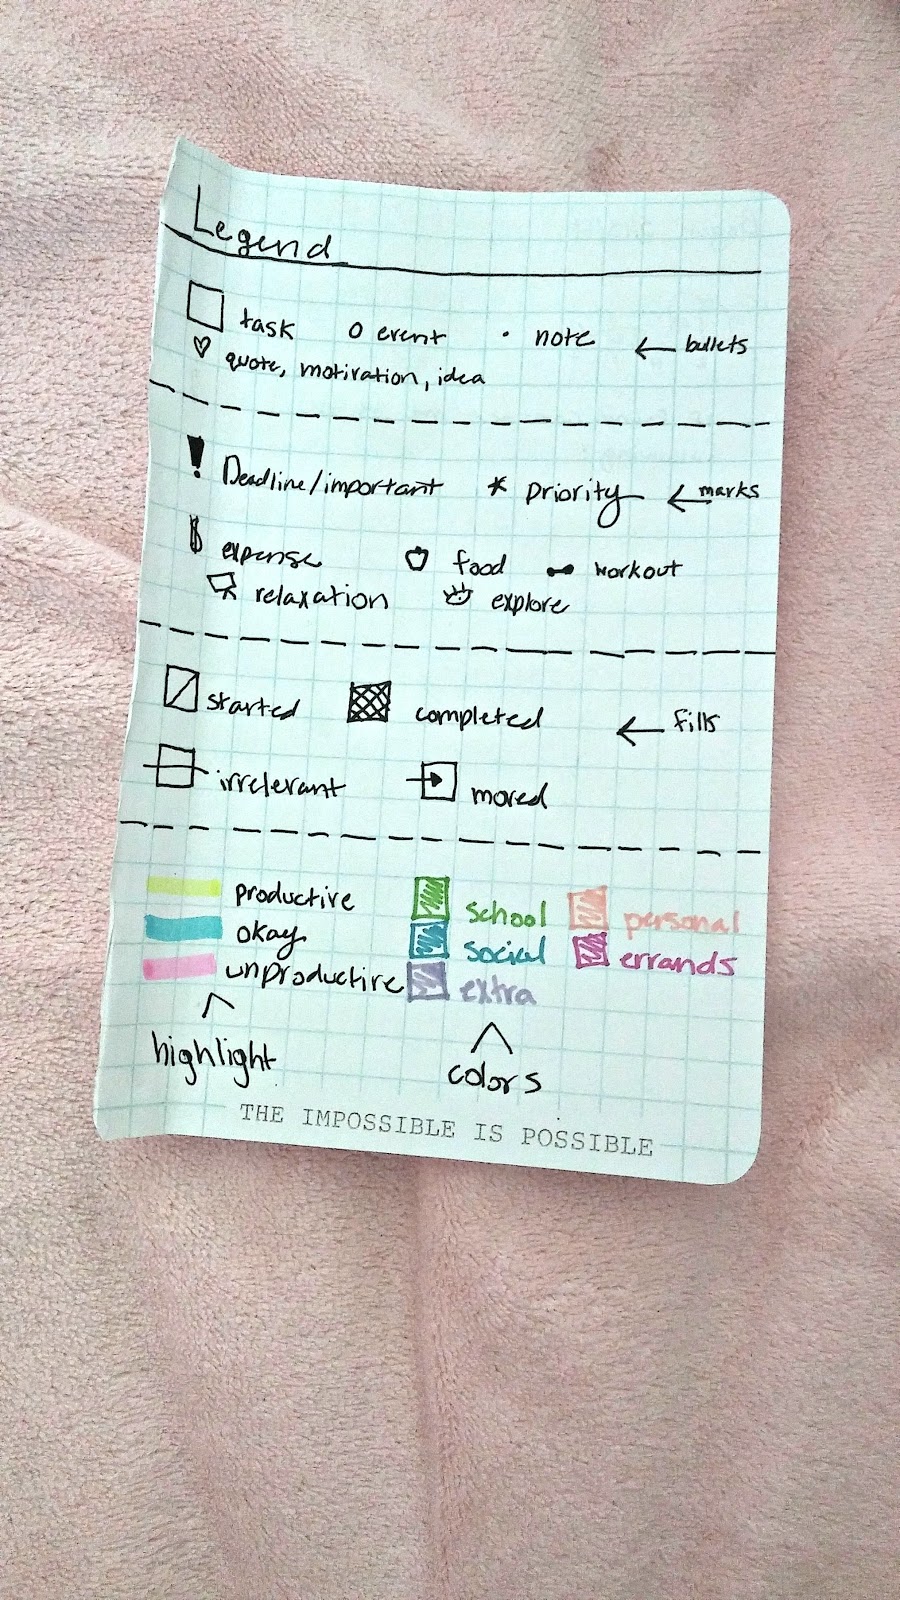 Legend
task o event · note ← bullets
♡ quote, motivation, idea
! Deadline/important * priority ← marks
$ expense food workout
relaxation explore
started completed ← fills
irrelevant moved
productive school personal
okay social errands
unproductive extra
highlight colors
THE IMPOSSIBLE IS POSSIBLE